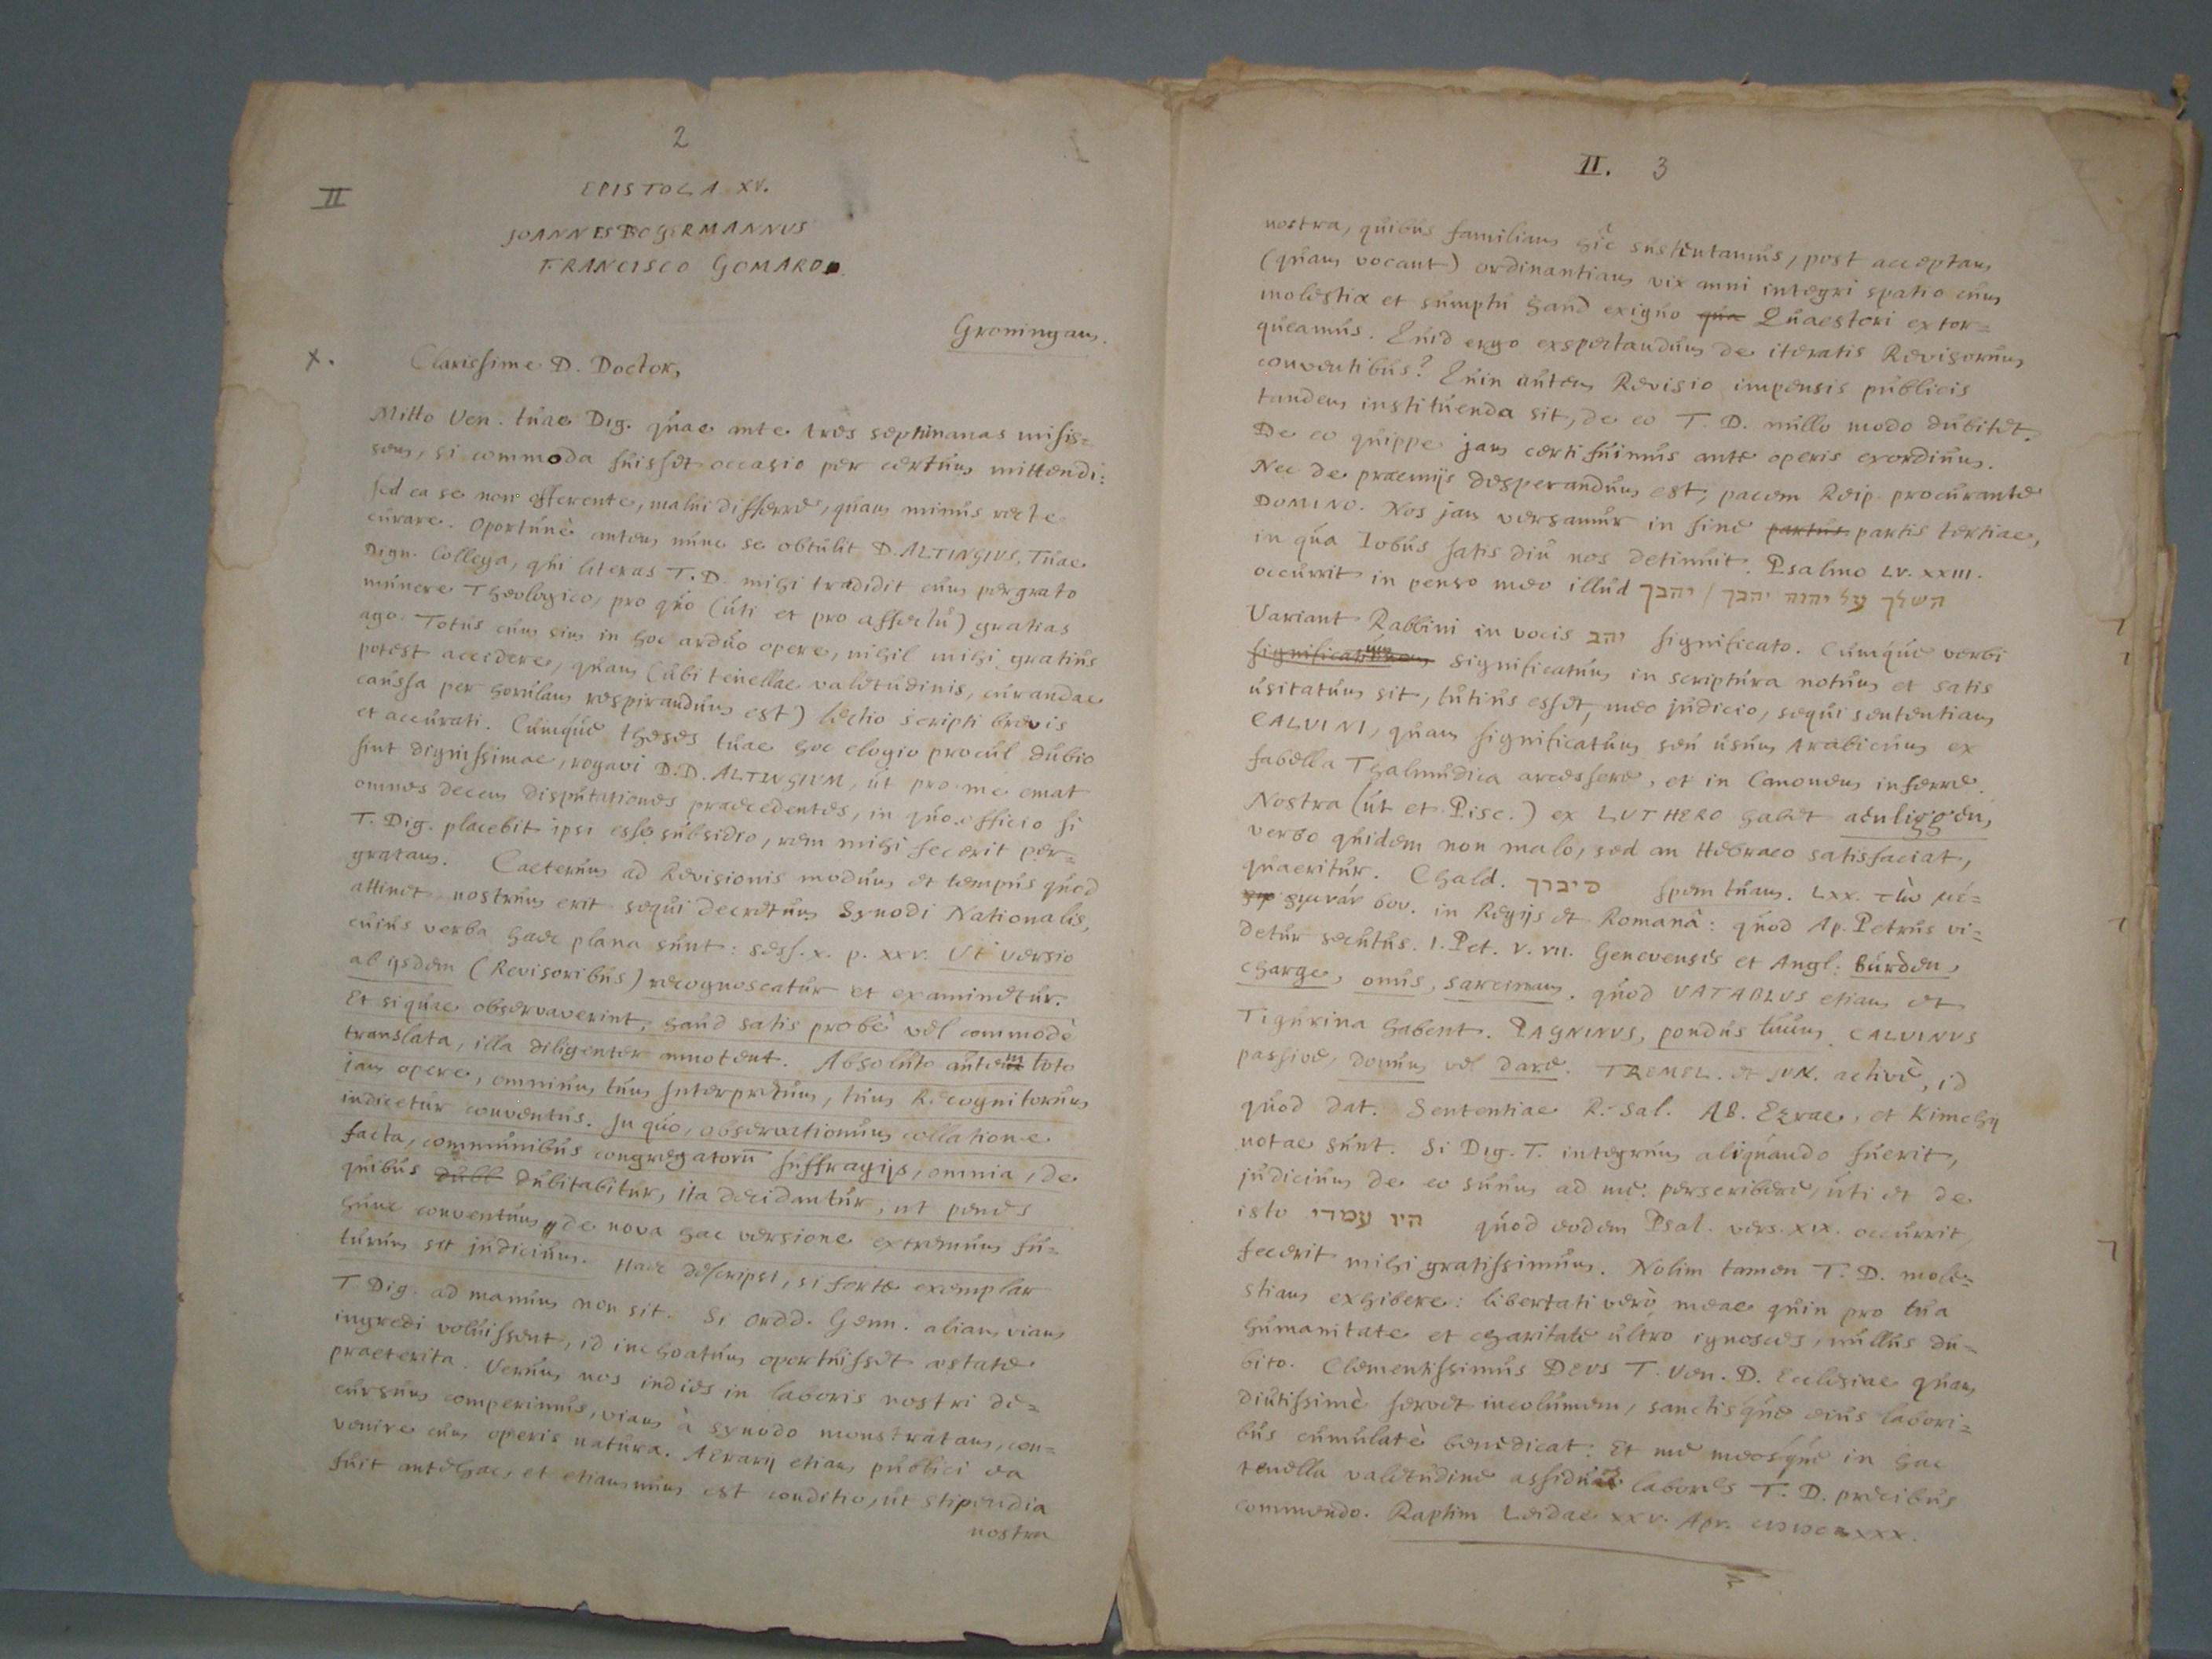 2
II
EPISTOLA XV.
JOANNES BOGERMANNUS
FRANCISCO GOMARO.
Groningam.
x.
Clarissime D. Doctor,
Mitto Ven. tuae Dig. quae ante tres septimanas misis=
sem, si commoda fuisset occasio per certum mittendi:
sed ea se non offerente, malui differre, quam minus recte
curare. Oportunè autem nunc se obtulit D. ALTINGIUS, Tuae
Dign. Collega, qui literas T. D. mihi tradidit cum pergrato
munere Theologico, pro quo (uti et pro affectu) gratias
ago. Totus cum sim in hoc arduo opere, nihil mihi gratius
potest accidere, quam (ubi tenellae valetudinis, curandae
caussa per horulam respirandum est) lectio scripti brevis
et accurati. Cumque theses tuae hoc elogio procul dubio
sint dignissimae, rogavi D.D. ALTINGIUM, ut pro me emat
omnes decem disputationes praecedentes, in quo officio si
T. Dig. placebit ipsi esse subsidio, rem mihi fecerit per=
gratam. Caeterum ad Revisionis modum et tempus quod
attinet nostrum erit sequi decretum Synodi Nationalis,
cuius verba haec plana sunt: sess. x. p. xxv. Ut versio
ab ijsdem (Revisoribus) recognoscatur et examinetur.
Et si quae observaverint, haud satis probè vel commodè
translata, illa diligenter annotent. Absoluto autem toto
jam opere, omnium tum Interpretum, tum Recognitorum
indicetur conventus. In quo, observationum collatione
facta, communibus congregatorū suffragijs, omnia, de
quibus dubl dubitabitur, ita decidantur, ut penes
hunc conventum, de nova hac versione extremum fu=
turum sit judicium. Haec descripsi, si forte exemplar
T. Dig. ad manum non sit. Si Ordd. Genn. aliam viam
ingredi voluissent, id inchoatum oportuisset aestate
praeterita. Verum nos indies in laboris nostri de=
cursum comperimus, viam à synodo monstratam, con=
venire cum operis natura. AErarij etiam publici ea
fuit antehac, et etiamnum est conditio, ut stipendia
nostra
II. 3
nostra, quibus familiam hîc sustentamus, post acceptam
(quam vocant) ordinantiam vix anni integri spatio cum
molestia et sumptu haud exiguo qua Quaestori extor=
queamus. Quid ergo exspectandum de iteratis Revisorum
conventibus? Quin autem Revisio impensis publicis
tandem instituenda sit, de eo T. D. nullo modo dubitet.
De eo quippe jam certi fuimus ante operis exordium.
Nec de praemijs desperandum est, pacem Reip. procurante
DOMINO. Nos jam versamur in fine partus partis tertiae,
in qua Iobus satis diu nos detinuit. Psalmo LV. XXIII.
occurrit in penso meo illud השלך על יהוה יהבך / יהבך
Variant Rabbini in vocis יהב significato. Cumque verbi
significatum significatum in scriptura notum et satis
usitatum sit, tutius esset, meo judicio, sequi sententiam
CALVINI, quam significatum seu usum Arabicum ex
fabella Thalmudica arcessere, et in Canonem inferre.
Nostra (ut et Pisc.) ex LUTHERO habet aenliggen,
verbo quidem non malo, sed an Hebraeo satisfaciat,
quaeritur. Chald. סיברך spem tuam. LXX. τὴν μέ=
ριμνάν σου. in Regijs et Romanâ: quod Ap. Petrus vi=
detur secutus. 1. Pet. V. VII. Genevensis et Angl: burden,
charge, onus, sarcinam. quod VATABLUS etiam et
Tigurina habent. PAGNINUS, pondus tuum. CALVINUS
passive, donum vel dare. TREMEL. et JUN. activè, id
quod dat. Sententiae R. Sal. AB. Ezrae, et Kimchij
notae sunt. Si Dig. T. integrum aliquando fuerit,
judicium de eo suum ad me perscribere, uti et de
isto היו עמדי quod eodem Psal. vers. XIX. occurrit,
fecerit mihi gratissimum. Nolim tamen T. D. mole=
stiam exhibere: libertati verò meae quin pro tua
humanitate et charitate ultro ignosces, nullus du=
bito. Clementissimus DEUS T. Ven. D. Ecclesiae quam
diutissimè servet incolumem, sanctisque eius labori=
bus cumulatè benedicat: Et me meosque in hac
tenella valetudine assiduos labores T. D. precibus
commendo. Raptim Leidae XXV. Apr. XXX.